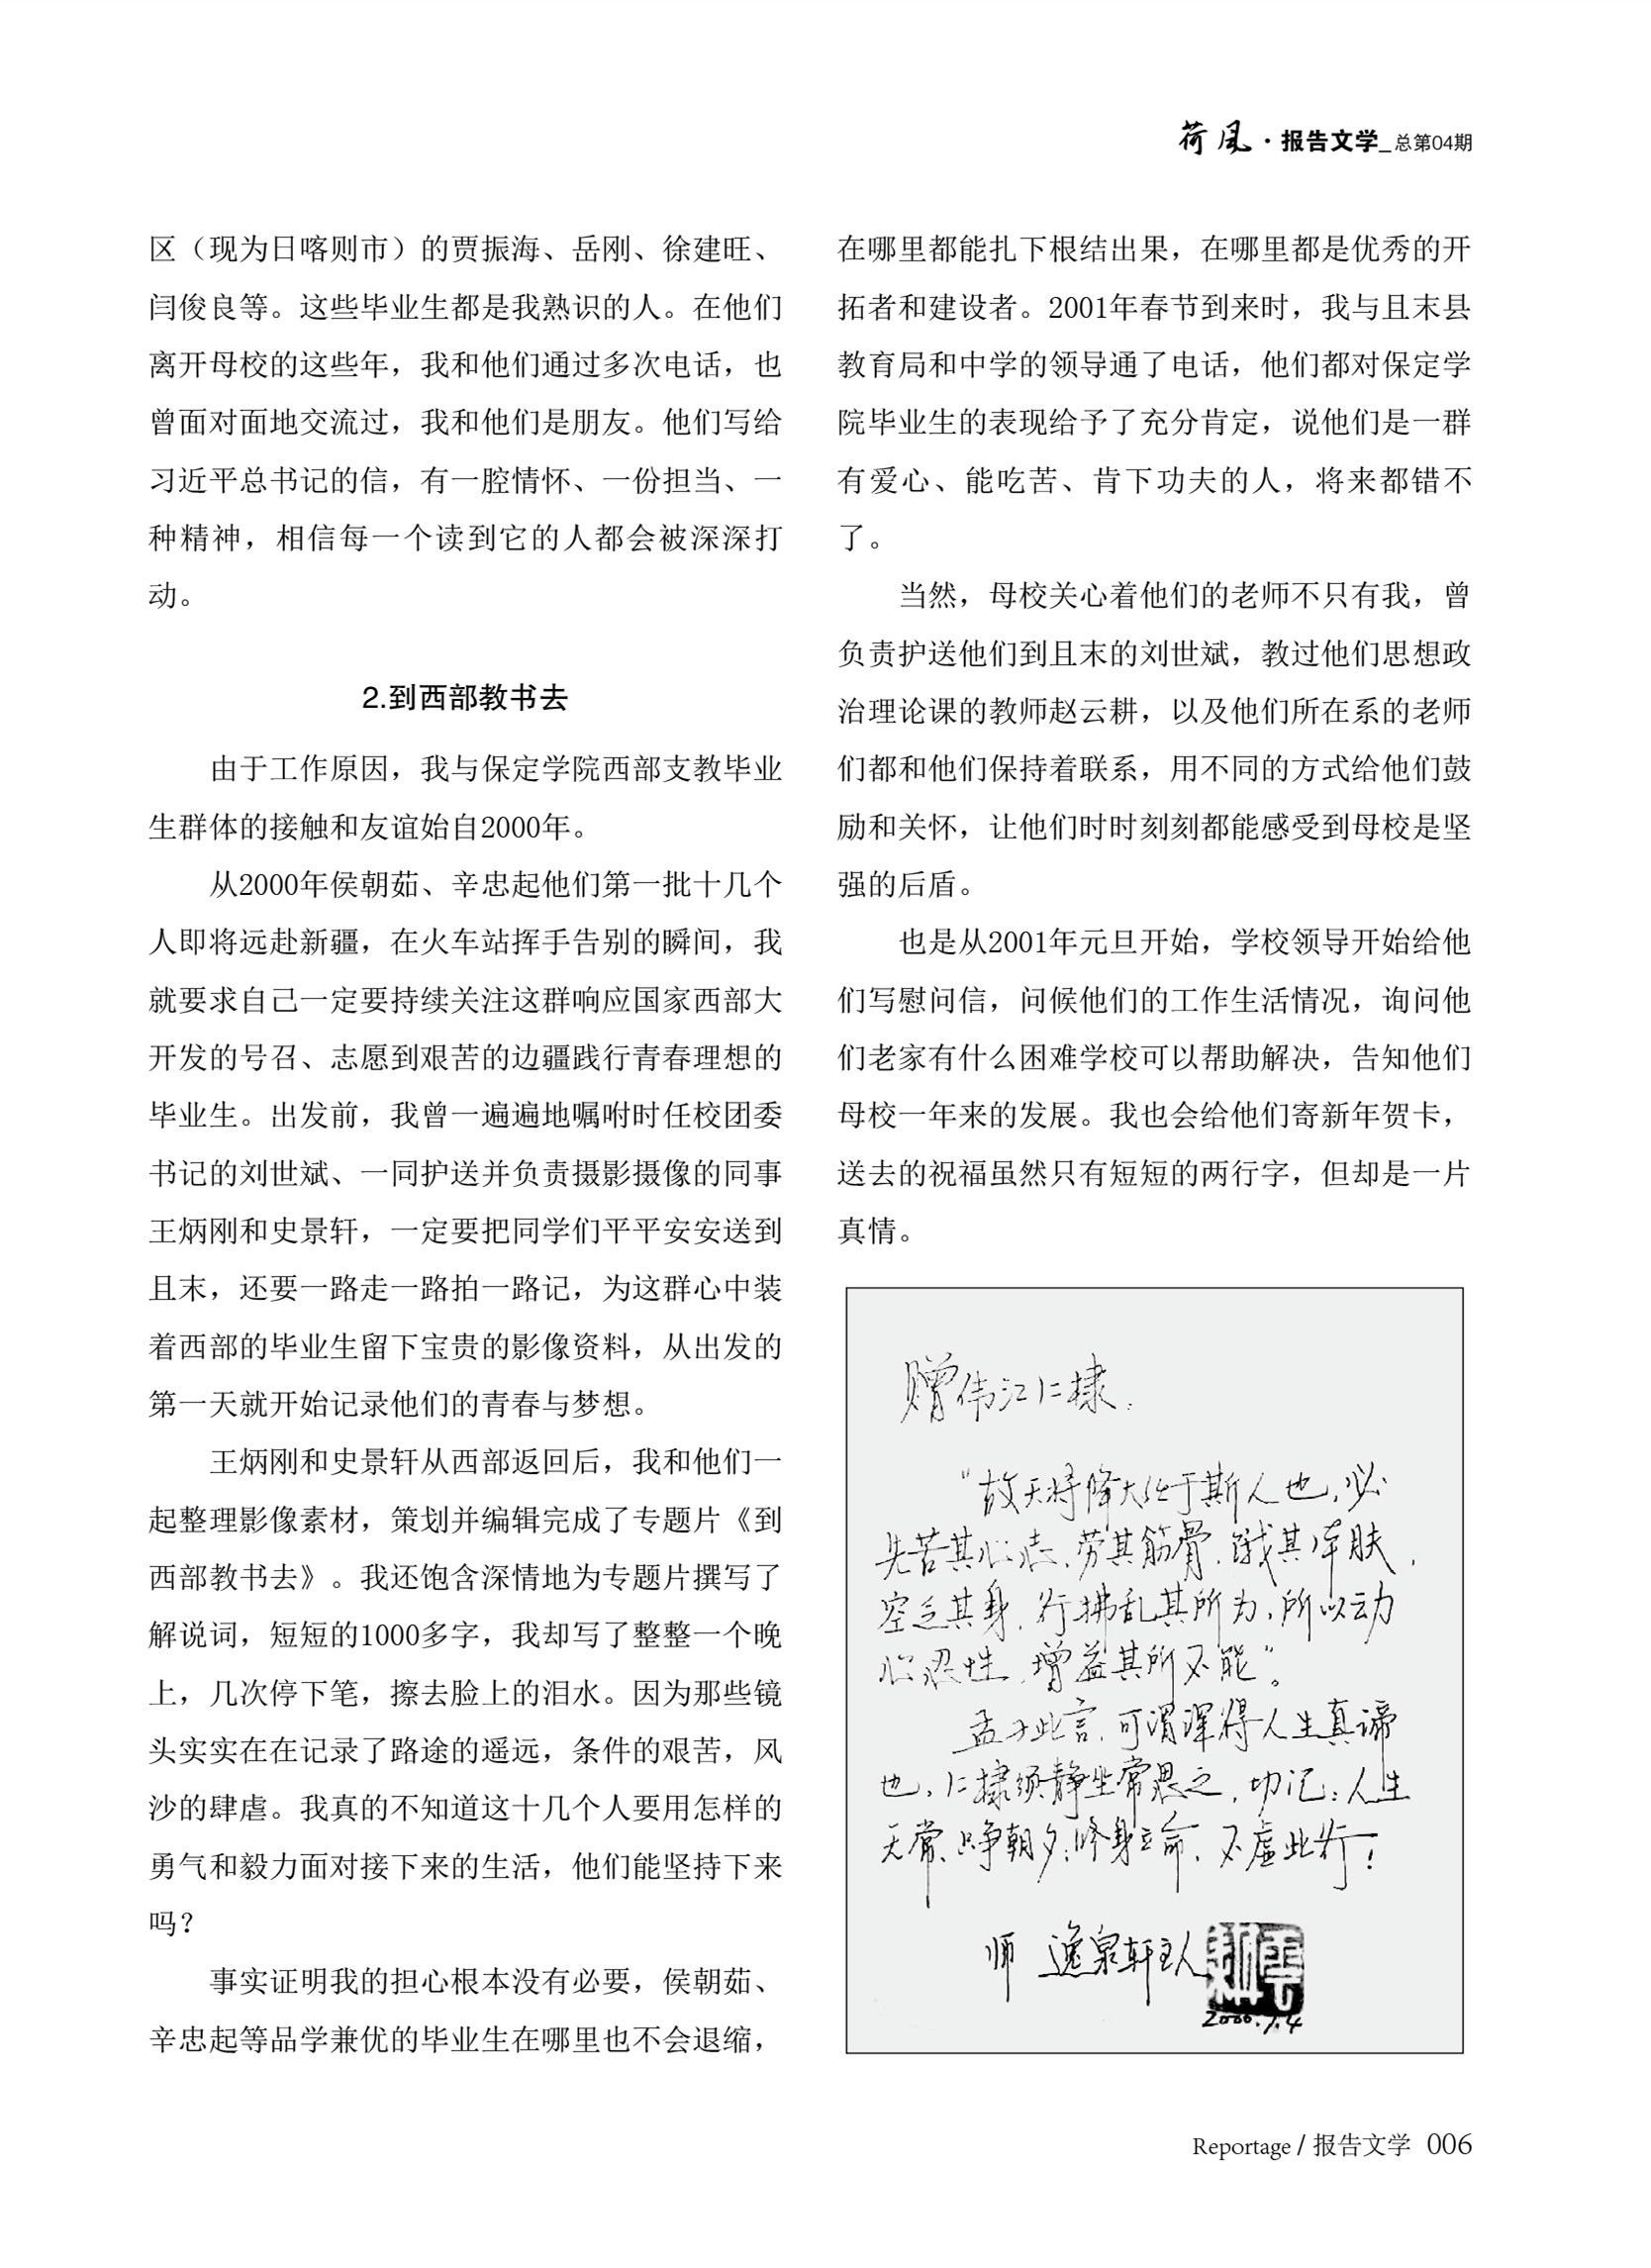 荷风·报告文学_总第04期
区（现为日喀则市）的贾振海、岳刚、徐建旺、
闫俊良等。这些毕业生都是我熟识的人。在他们
离开母校的这些年，我和他们通过多次电话，也
曾面对面地交流过，我和他们是朋友。他们写给
习近平总书记的信，有一腔情怀、一份担当、一
种精神，相信每一个读到它的人都会被深深打
动。
2.到西部教书去
由于工作原因，我与保定学院西部支教毕业
生群体的接触和友谊始自2000年。
从2000年侯朝茹、辛忠起他们第一批十几个
人即将远赴新疆，在火车站挥手告别的瞬间，我
就要求自己一定要持续关注这群响应国家西部大
开发的号召、志愿到艰苦的边疆践行青春理想的
毕业生。出发前，我曾一遍遍地嘱咐时任校团委
书记的刘世斌、一同护送并负责摄影摄像的同事
王炳刚和史景轩，一定要把同学们平平安安送到
且末，还要一路走一路拍一路记，为这群心中装
着西部的毕业生留下宝贵的影像资料，从出发的
第一天就开始记录他们的青春与梦想。
王炳刚和史景轩从西部返回后，我和他们一
起整理影像素材，策划并编辑完成了专题片《到
西部教书去》。我还饱含深情地为专题片撰写了
解说词，短短的1000多字，我却写了整整一个晚
上，几次停下笔，擦去脸上的泪水。因为那些镜
头实实在在记录了路途的遥远，条件的艰苦，风
沙的肆虐。我真的不知道这十几个人要用怎样的
勇气和毅力面对接下来的生活，他们能坚持下来
吗？
事实证明我的担心根本没有必要，侯朝茹、
辛忠起等品学兼优的毕业生在哪里也不会退缩，
在哪里都能扎下根结出果，在哪里都是优秀的开
拓者和建设者。2001年春节到来时，我与且末县
教育局和中学的领导通了电话，他们都对保定学
院毕业生的表现给予了充分肯定，说他们是一群
有爱心、能吃苦、肯下功夫的人，将来都错不
了。
当然，母校关心着他们的老师不只有我，曾
负责护送他们到且末的刘世斌，教过他们思想政
治理论课的教师赵云耕，以及他们所在系的老师
们都和他们保持着联系，用不同的方式给他们鼓
励和关怀，让他们时时刻刻都能感受到母校是坚
强的后盾。
也是从2001年元旦开始，学校领导开始给他
们写慰问信，问候他们的工作生活情况，询问他
们老家有什么困难学校可以帮助解决，告知他们
母校一年来的发展。我也会给他们寄新年贺卡，
送去的祝福虽然只有短短的两行字，但却是一片
真情。
赠伟江仁棣：
“故天将降大任于斯人也，必
先苦其心志，劳其筋骨，饿其体肤，
空乏其身，行拂乱其所为，所以动
心忍性，增益其所不能”。
孟子此言，可谓深得人生真谛
也，仁棣须静坐常思之，切记：人生
无常，只争朝夕；修身立命，不虚此行！
师 逸泉轩主人
云耕
2000.7.4
Reportage / 报告文学 006